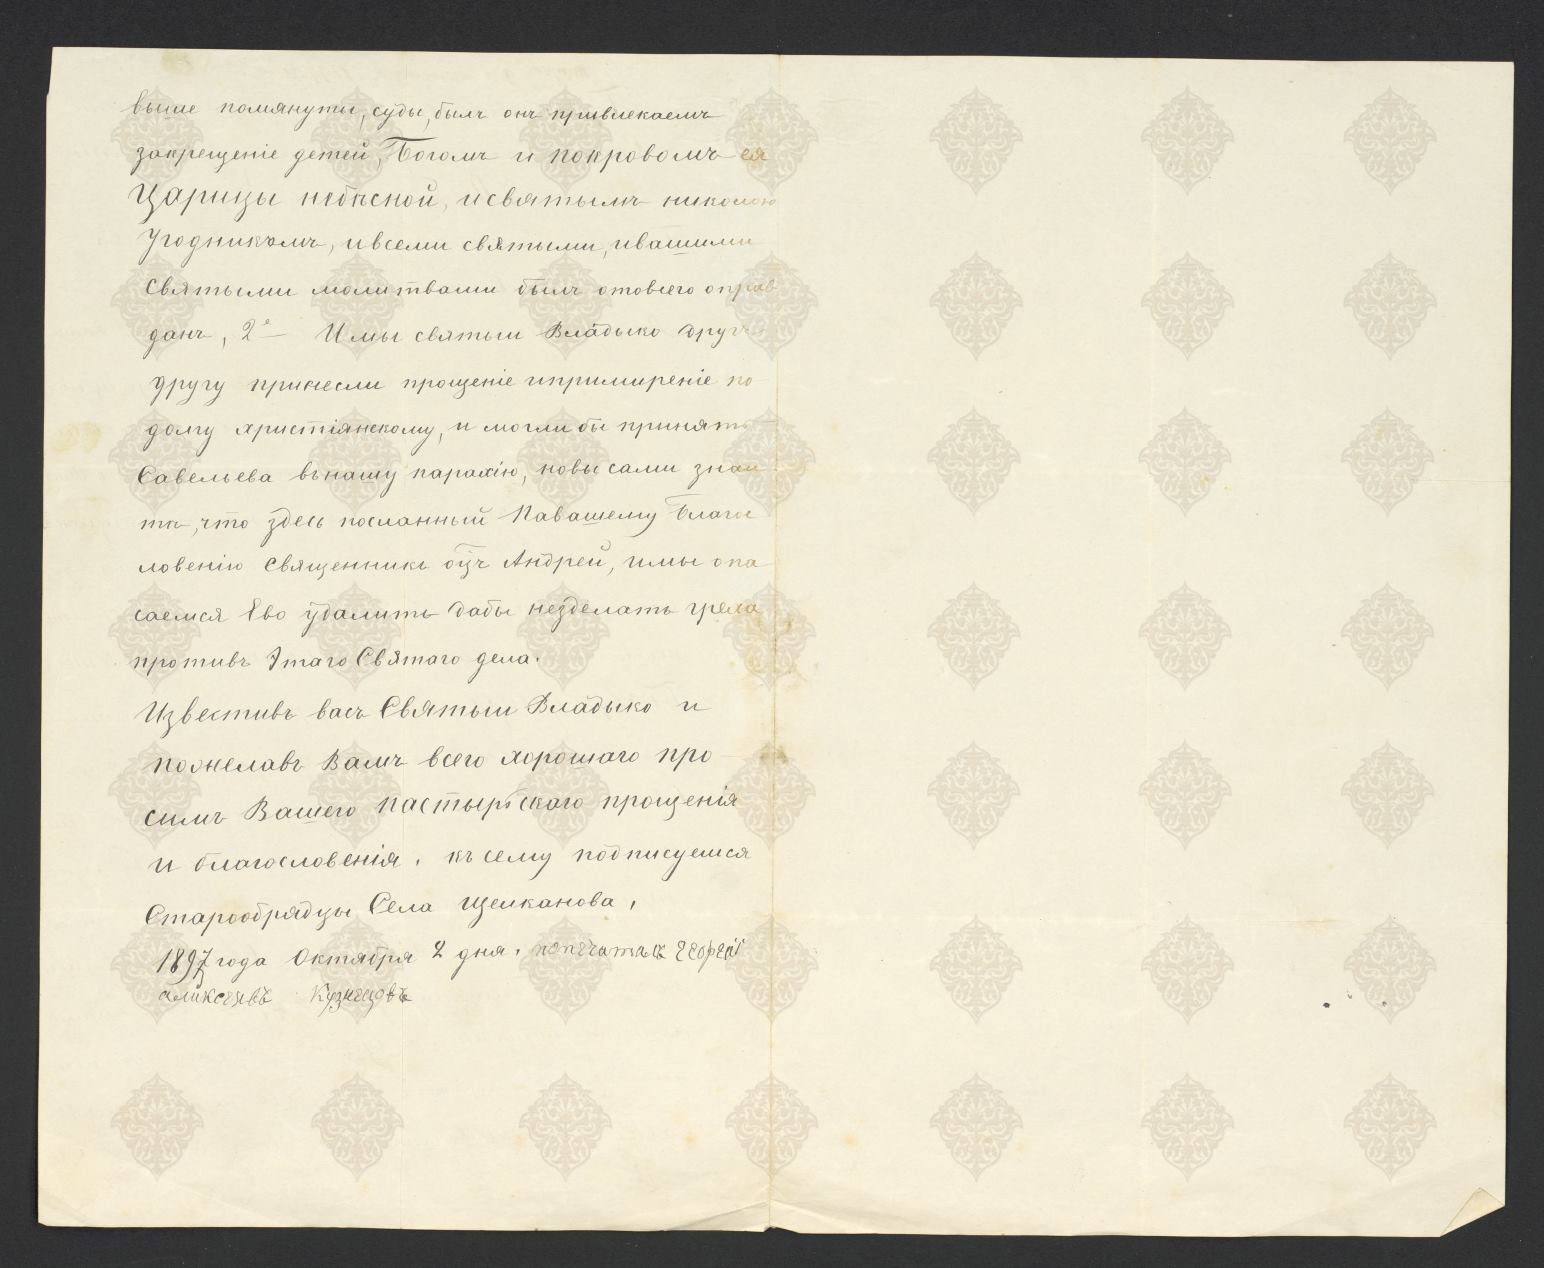 выше помянуты, суды, былъ онъ привлекаемъ
закрещеніе детей, Богомъ и покровомъ ея
Царицы небѣсной, исвятымъ николою
Угодникомъ, ивсеми святыми, ивашими
святыми молитвами былъ отовсего оправ
данъ, 2е — И мы святыи Владыко другъ
другу принесли прощеніе ипримиреніе по
долгу христіянскому, и могли бы принять
Савельева вънашу парахію, новы сами знаи
те, что здесь посланный Павашему Благос
ловенію священникъ оцъ Андрей, имы опа
саемся Ево удалить дабы незделать греха
противъ Этаго Святаго дела.
Известивъ васъ Святыи Владыко и
пожелавъ Вамъ всего хорошаго про
симъ Вашего пастырьскаго прощенія
и благословенія. къ сему подписуемся
Старообрядцы Села Щелканова,
1897 года Октября 2 дня. попечатель Георгій
аликсеявъ Кузнецовъ